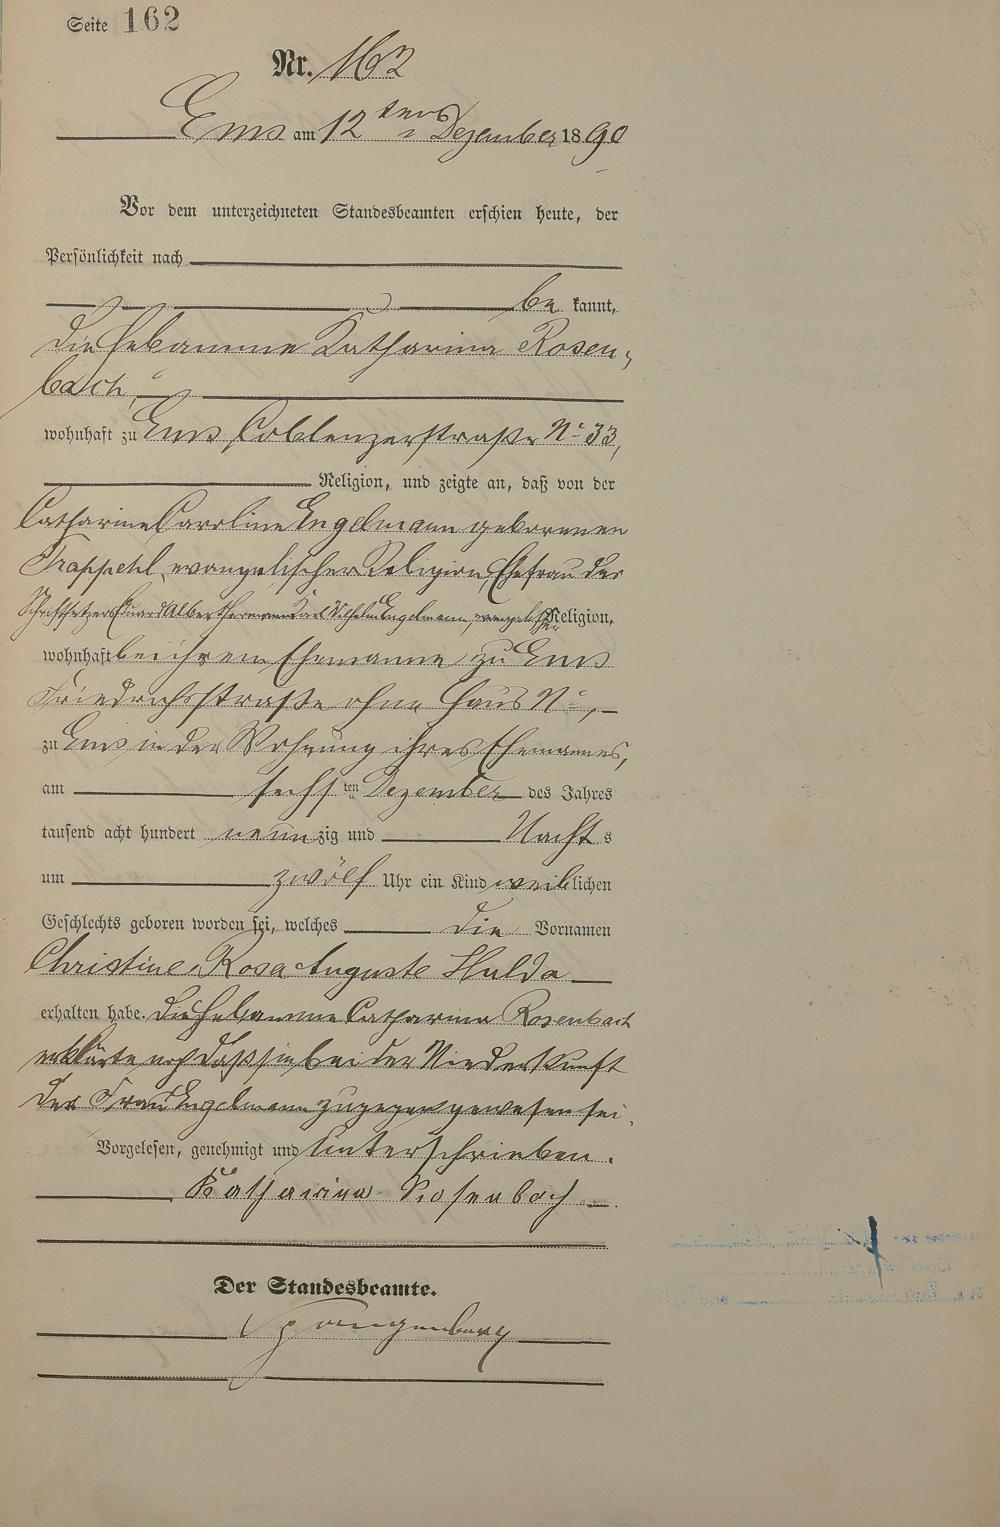 Seite 162
Nr. 162
Ems am 12ten Dezember 1890
Vor dem unterzeichneten Standesbeamten erschien heute, der
Persönlichkeit nach
be kannt,
die Hebamme Katharina Rosen-
bach,
wohnhaft zu Ems Coblenzerstraße No 33,
Religion, und zeigte an, daß von der
Catharine Caroline Engelmann geborenen
evangelischer Religion, Ehefrau des
Schriftsetzers Eduard Albert Hermann Karl Wilhelm Engelmann, evangelischer Religion,
wohnhaft bei ihrem Ehemanne zu Ems
Friedrichsstraße ohne Haus No,
zu Ems in der Wohnung ihres Ehemannes,
am sechsten Dezember des Jahres
tausend acht hundert neunzig und Nachts
um zwölf Uhr ein Kind weiblichen
Geschlechts geboren worden sei, welches die Vornamen
Christine Rosa Auguste Hulda
erhalten habe. Die Hebamme Catharina Rosenbach
erklärte noch daß sie bei der Niederkunft
der Frau Engelmann zugegen gewesen sei.
Vorgelesen, genehmigt und unterschrieben.
Katharina Rosenbach
Der Standesbeamte.
Spangenberg